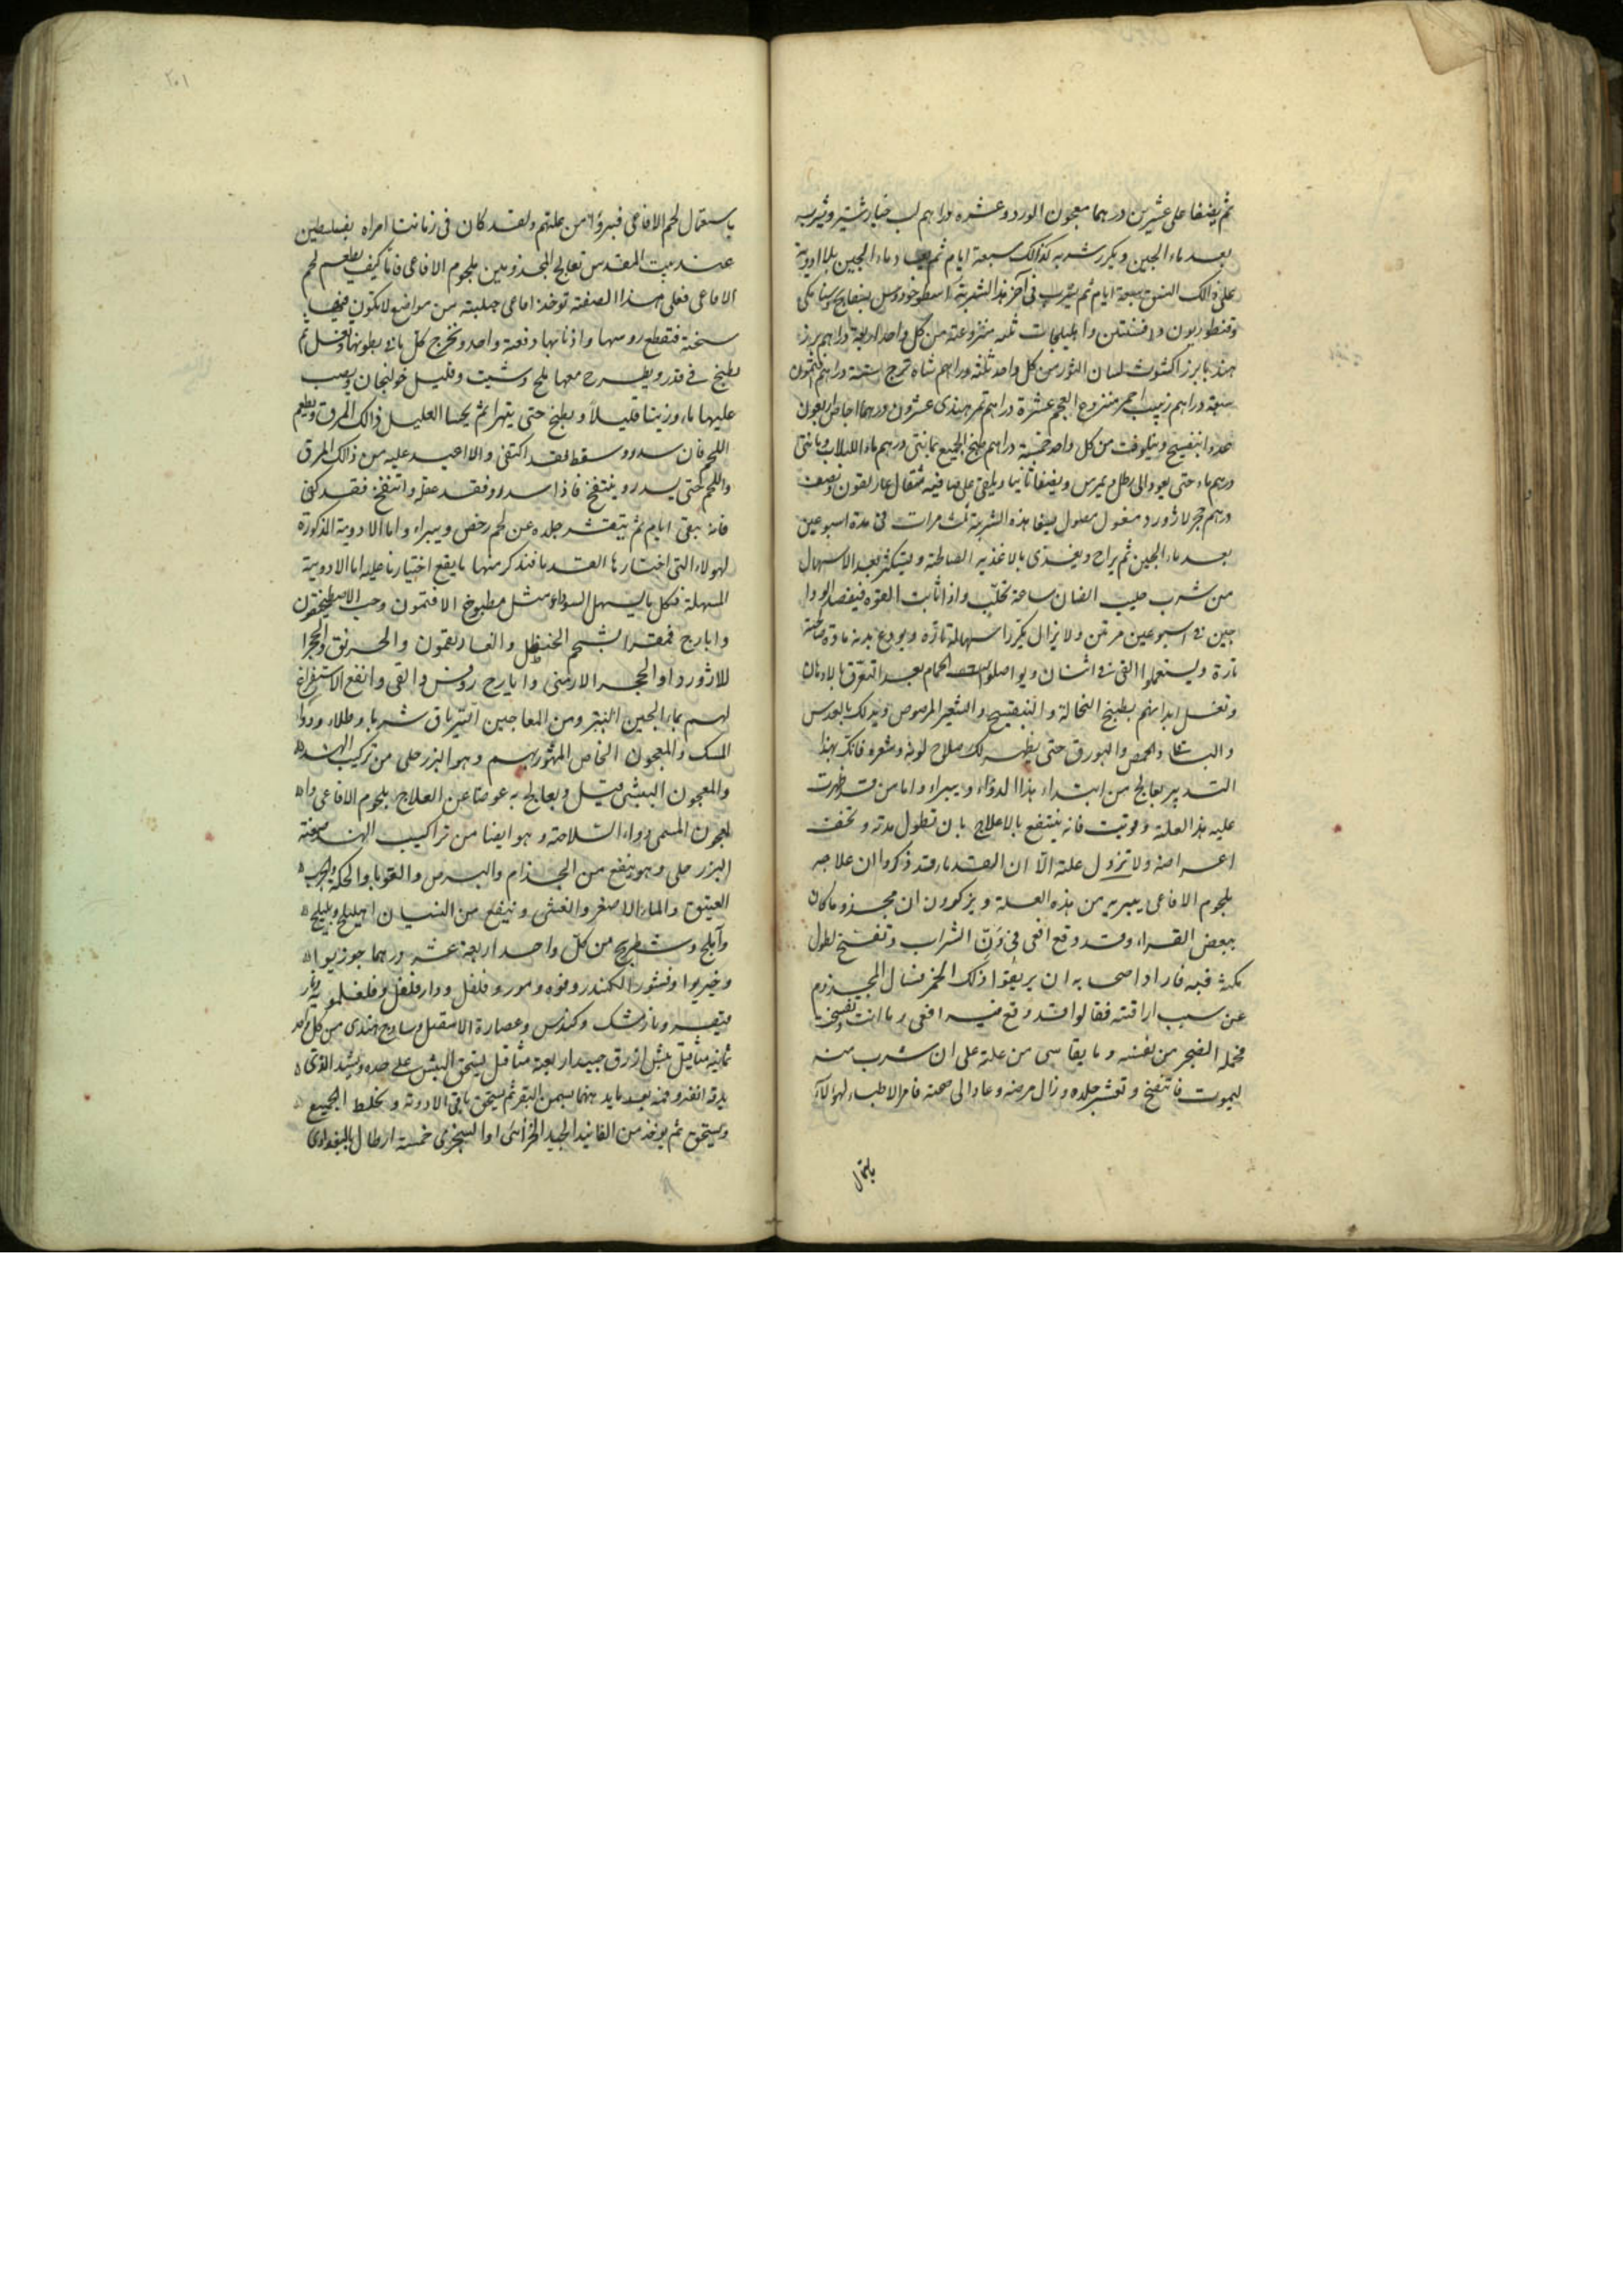 ثم يصفا على عشرين درهما معجون الورد وعشره دراهم لب خيارشنبر ويشربه
بعد ماء الجبن ويكرر شربه كذالك سبعة ايام ثم يعاد ماء الجبن بلا ادوية
على ذالك النسق سبعة ايام ثم يشرب فى آخر هذا الشربة اسطوخودوس بسفايج وسنا مكى
وقنطوريون وافسنتين واهليلجات ثلثه منزوعة من كل واحد اربعة دراهم بزر
هندبا بزر اكشوث لسان الثور من كل واحد ثلثه دراهم شاهترج ستة دراهم افتيمون
سبعة دراهم زبيب احمر منزوع العجم عشرة دراهم تمر هندى عشرون درهما اجاص اربعون
عددا بنفسج ونيلوفر من كل واحد خمسة دراهم يطبخ الجميع بمائتى درهم ماء اللبلاب ومائتى
درهم ماء حتى يعود الى رطل ثم يمرس ويصفا ثانيا ويلقى على صافيه مثقال غاريقون ونصف
درهم حجر لازورد مغسول محلول يسقا هذه الشربة ثلث مرات فى مدة اسبوعين
بعد ماء الجبن ثم يراح ويغذى بالاغذيه الصالحة ويستكثر بعد الاسهال
من شرب حليب الضان ساعة تحلب واذا ثابت القوه فيفصد الودا
جين فى اسبوعين مرتين ولا يزال يكرر اسهاله تارة ويودع بدنه مادة صالحة
تارة ويستعملوا القى فى اثنان ويواصلوا الحمام بعد التعرق بالادهان
وتغسل ابدانهم بطبيخ النخالة والبنفسج والشعير المرضوض ويدلك بالعدس
والحمص والبورق حتى يظهر لك صلاح لونه وشعره فانك بهذا
التدبير تعالج من ابتداء هذا الدواء ويبراء واما من قد ظهرت
عليه هذا العلة وقويت فانه ينتفع بالاعلاج بان تطول مدته وتخف
اعراضه ولا تزول علة الّا ان القدماء قد ذكروا ان علاجه
بلحوم الافاعى يبريه من هذه العلة ويزكورون ان مجذوما كان
ببعض القراء وقد وقع افعى فى دنّ الشراب وتفسخ لطول
مكثه فيه فارادا اصحابه ان يريقوا ذلك الخمر فسال المجذوم
عن سبب اراقته فقالوا قد وقع فيه افعى وماتت وتفسخت
فحمله الضجر من نفسه وما يقاسى من علة على ان شرب منه
ليموت فانتفخ وتقشر جلده وزال مرضه وعاد الى صحته فامر الاطباء لهولاء
باستعمال
٢٠١
باستعمال لحم الافاعى فبرؤا من علتهم ولقد كان فى زماننا امراه بفلسطين
عند بيت المقدس تعالج المجذومين بلحوم الافاعى فاما كيف يطعم لحم
الافاعى فعلى هذا الصفة توخذ افاعى جبلية من مواضع لا يكون فيها
سبخة فتقطع روسها واذنابها دفعة واحد وتخرج كل ما فى بطونها وتغسل ثم
يطبخ فى قدر ويطرح معها ملح وشبت وقليل خولنجان ويصب
عليها ماء وزيتا قليلاً ويطبخ حتى يتهرا ثم يحسا العليل ذالك المرق ويطعم
اللحم فان سدر وسقط فقد اكتفى والا اعيد عليه من ذالك المرق
واللحم حتى يسدر وينتفخ فاذا سدر وفقد عقله وانتفخ فقد كفى
فانه يبقى ايام ثم يتقشر جلده عن لحم رخص ويبراء واما الادوية المذكورة
لهولاء التى اختارها القدما فنذكر منها ما يقع اختيارنا عليه اما الادوية
المسهلة فكل ما يسهل السوداء مثل مطبوخ الافتيمون وحب الاصطمخيقون
وايارج فيقرا بشحم الحنظل والغاريقون والخربق والحجر ا
للازورد او الحجر الارمنى وايارج روفس والقى وانفع الاستفراغ
لهم بماء الجبن ومن المعاجين الترياق شربا وطلاء ودوا
المسك والمعجون الخاص المشهور بهم وهو البزرجلى من تركيب الهند
والمعجون البيشى قيل ويعالج به عوضا عن العلاج بلحوم الافاعى وا
لمعجون المسمى دواء السلاحة وهو ايضا من تراكيب الهند صفة
البزرجلى وهو ينفع من الجذام والبرص والقوبا والحكة والجرب
العتيق والماء الاصفر والغشى وينفع من النسيان اهليلج وبليلج
وآملج وشيطرج من كلّ واحد اربعة عشر درهما جوزبوا
وخيربوا وقشور الكندر وفوه ومرو وفلفل ودارفلفل وفلفلمويه ونار
قيصر ونارمشك وكندس وعصارة الاسقيل وساذج هندى من كل واحد
ثمانية مثاقيل بيش ازرق جيد اربعة مثاقيل يسحق البيش على حده ويشد الذى
يدقه انفه وفمه بعد ما يدهنهما بسمن البقر ثم يسحق باقى الادوية ويخلط الجميع
ويسحق ثم يوخذ من الفانيد الجيد الخزائنى او السجزى خمسة ارطال بالبغدادى